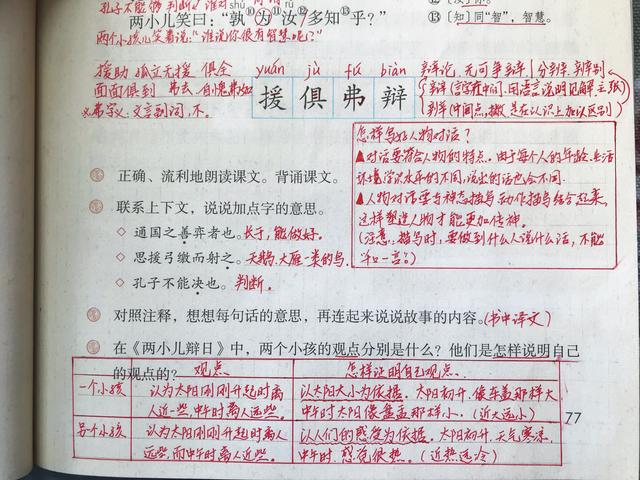 孔子不能够判断谁对
shú
⑬〔知〕同“智”，智慧。
两小儿笑曰：“孰⑪为⑫汝多知⑬乎？”
两个小孩儿笑着说：“谁说你很有智慧呢？”
援助 孤立无援 俱全
面面俱到 弗去 自愧弗如
弗字义：文言副词，不。
yuán jù fú biàn
援 俱 弗 辩
辩论 无可争辩 分辨 辨别
怎样写好人物对话？
▲对话要符合人物的特点。由于每个人的年龄、生活
环境、学识水平的不同，说出的话也会不同。
▲人物对话要与神态描写、动作描写结合起来，
这样塑造人物才能更加传神。
（注意：描写时，要做到什么人说什么话，不能
千口一言。）
正确、流利地朗读课文。背诵课文。
联系上下文，说说加点字的意思。
◇ 通国之善弈者也。长于，能做好。
◇ 思援弓缴而射之。天鹅、大雁一类的鸟。
◇ 孔子不能决也。判断。
对照注释，想想每句话的意思，再连起来说说故事的内容。（书中译文）
在《两小儿辩日》中，两个小孩的观点分别是什么？他们是怎样说明自己
的观点的？
观点 怎样证明自己观点
一个小孩 认为太阳刚刚升起时离人近一些，中午时离人远些。 以太阳大小为依据。太阳初升，像车盖那样大
中午时太阳像盘盂那样小。（近大远小）
另一个小孩 认为太阳刚刚升起时离人远些，而中午时离人近些。 以人们的感受为依据。太阳初升，天气寒凉，
中午时，感觉很热。（近热远冷）
77